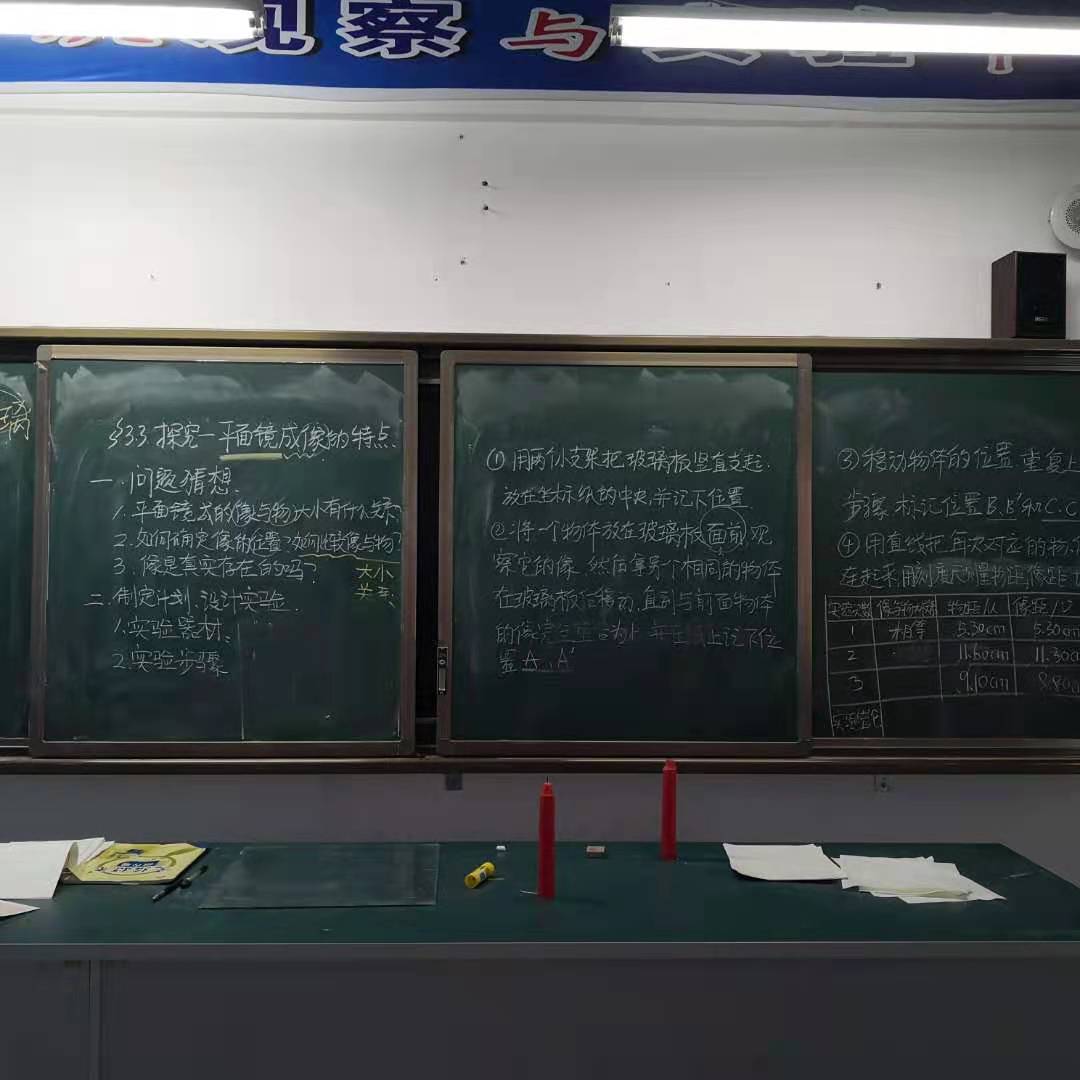 观察与实验
璃
§3.3 探究—平面镜成像的特点
一、问题猜想
1. 平面镜成的像与物大小有什么关系
2. 如何确定像的位置?如何比较像与物?
3. 像是真实存在的吗?
大小
关系
二、制定计划、设计实验
1. 实验器材、
2. 实验步骤
① 用两个支架把玻璃板竖直支起.
放在坐标纸的中央,并记下位置
② 将一个物体放在玻璃板面前观
察它的像,然后拿另一个相同的物体
在玻璃板后移动,直到与前面物体
的像完全重合为止 并在纸上记下位
置 A、A'
③ 移动物体的位置,重复上
步骤,标记位置 B、B'和C、C
④ 用直线把每次对应的物、
在起来用刻度尺测量物距,像距
实验次数 像与物大小 物距/u 像距/v
1 相等 5.30cm 5.30cm
2 11.60cm 11.30cm
3 9.10cm 8.80cm
实验结论